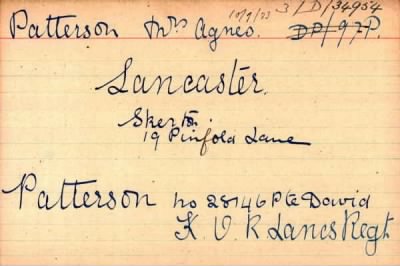 10/9/23 3/D/34954
Patterson Mrs Agnes. DP/97P.
Lancaster.
Skerton.
19 Pinfold Lane
Patterson No 28146 Pte David
K. O. R Lancs Regt